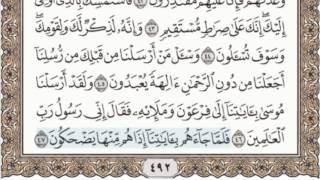 وَعَدْنَٰهُمْ فَإِنَّا عَلَيْهِم مُّقْتَدِرُونَ ٤٢ فَٱسْتَمْسِكْ بِٱلَّذِىٓ أُوحِىَ
إِلَيْكَ إِنَّكَ عَلَىٰ صِرَٰطٍ مُّسْتَقِيمٍ ٤٣ وَإِنَّهُۥ لَذِكْرٌ لَّكَ وَلِقَوْمِكَ
وَسَوْفَ تُسْـَٔلُونَ ٤٤ وَسْـَٔلْ مَنْ أَرْسَلْنَا مِن قَبْلِكَ مِن رُّسُلِنَآ
أَجَعَلْنَا مِن دُونِ ٱلرَّحْمَٰنِ ءَالِهَةً يُعْبَدُونَ ٤٥ وَلَقَدْ أَرْسَلْنَا
مُوسَىٰ بِـَٔايَٰتِنَآ إِلَىٰ فِرْعَوْنَ وَمَلَإِي۟هِۦ فَقَالَ إِنِّى رَسُولُ رَبِّ
ٱلْعَٰلَمِينَ ٤٦ فَلَمَّا جَآءَهُم بِـَٔايَٰتِنَآ إِذَا هُم مِّنْهَا يَضْحَكُونَ ٤٧
٤٩٢